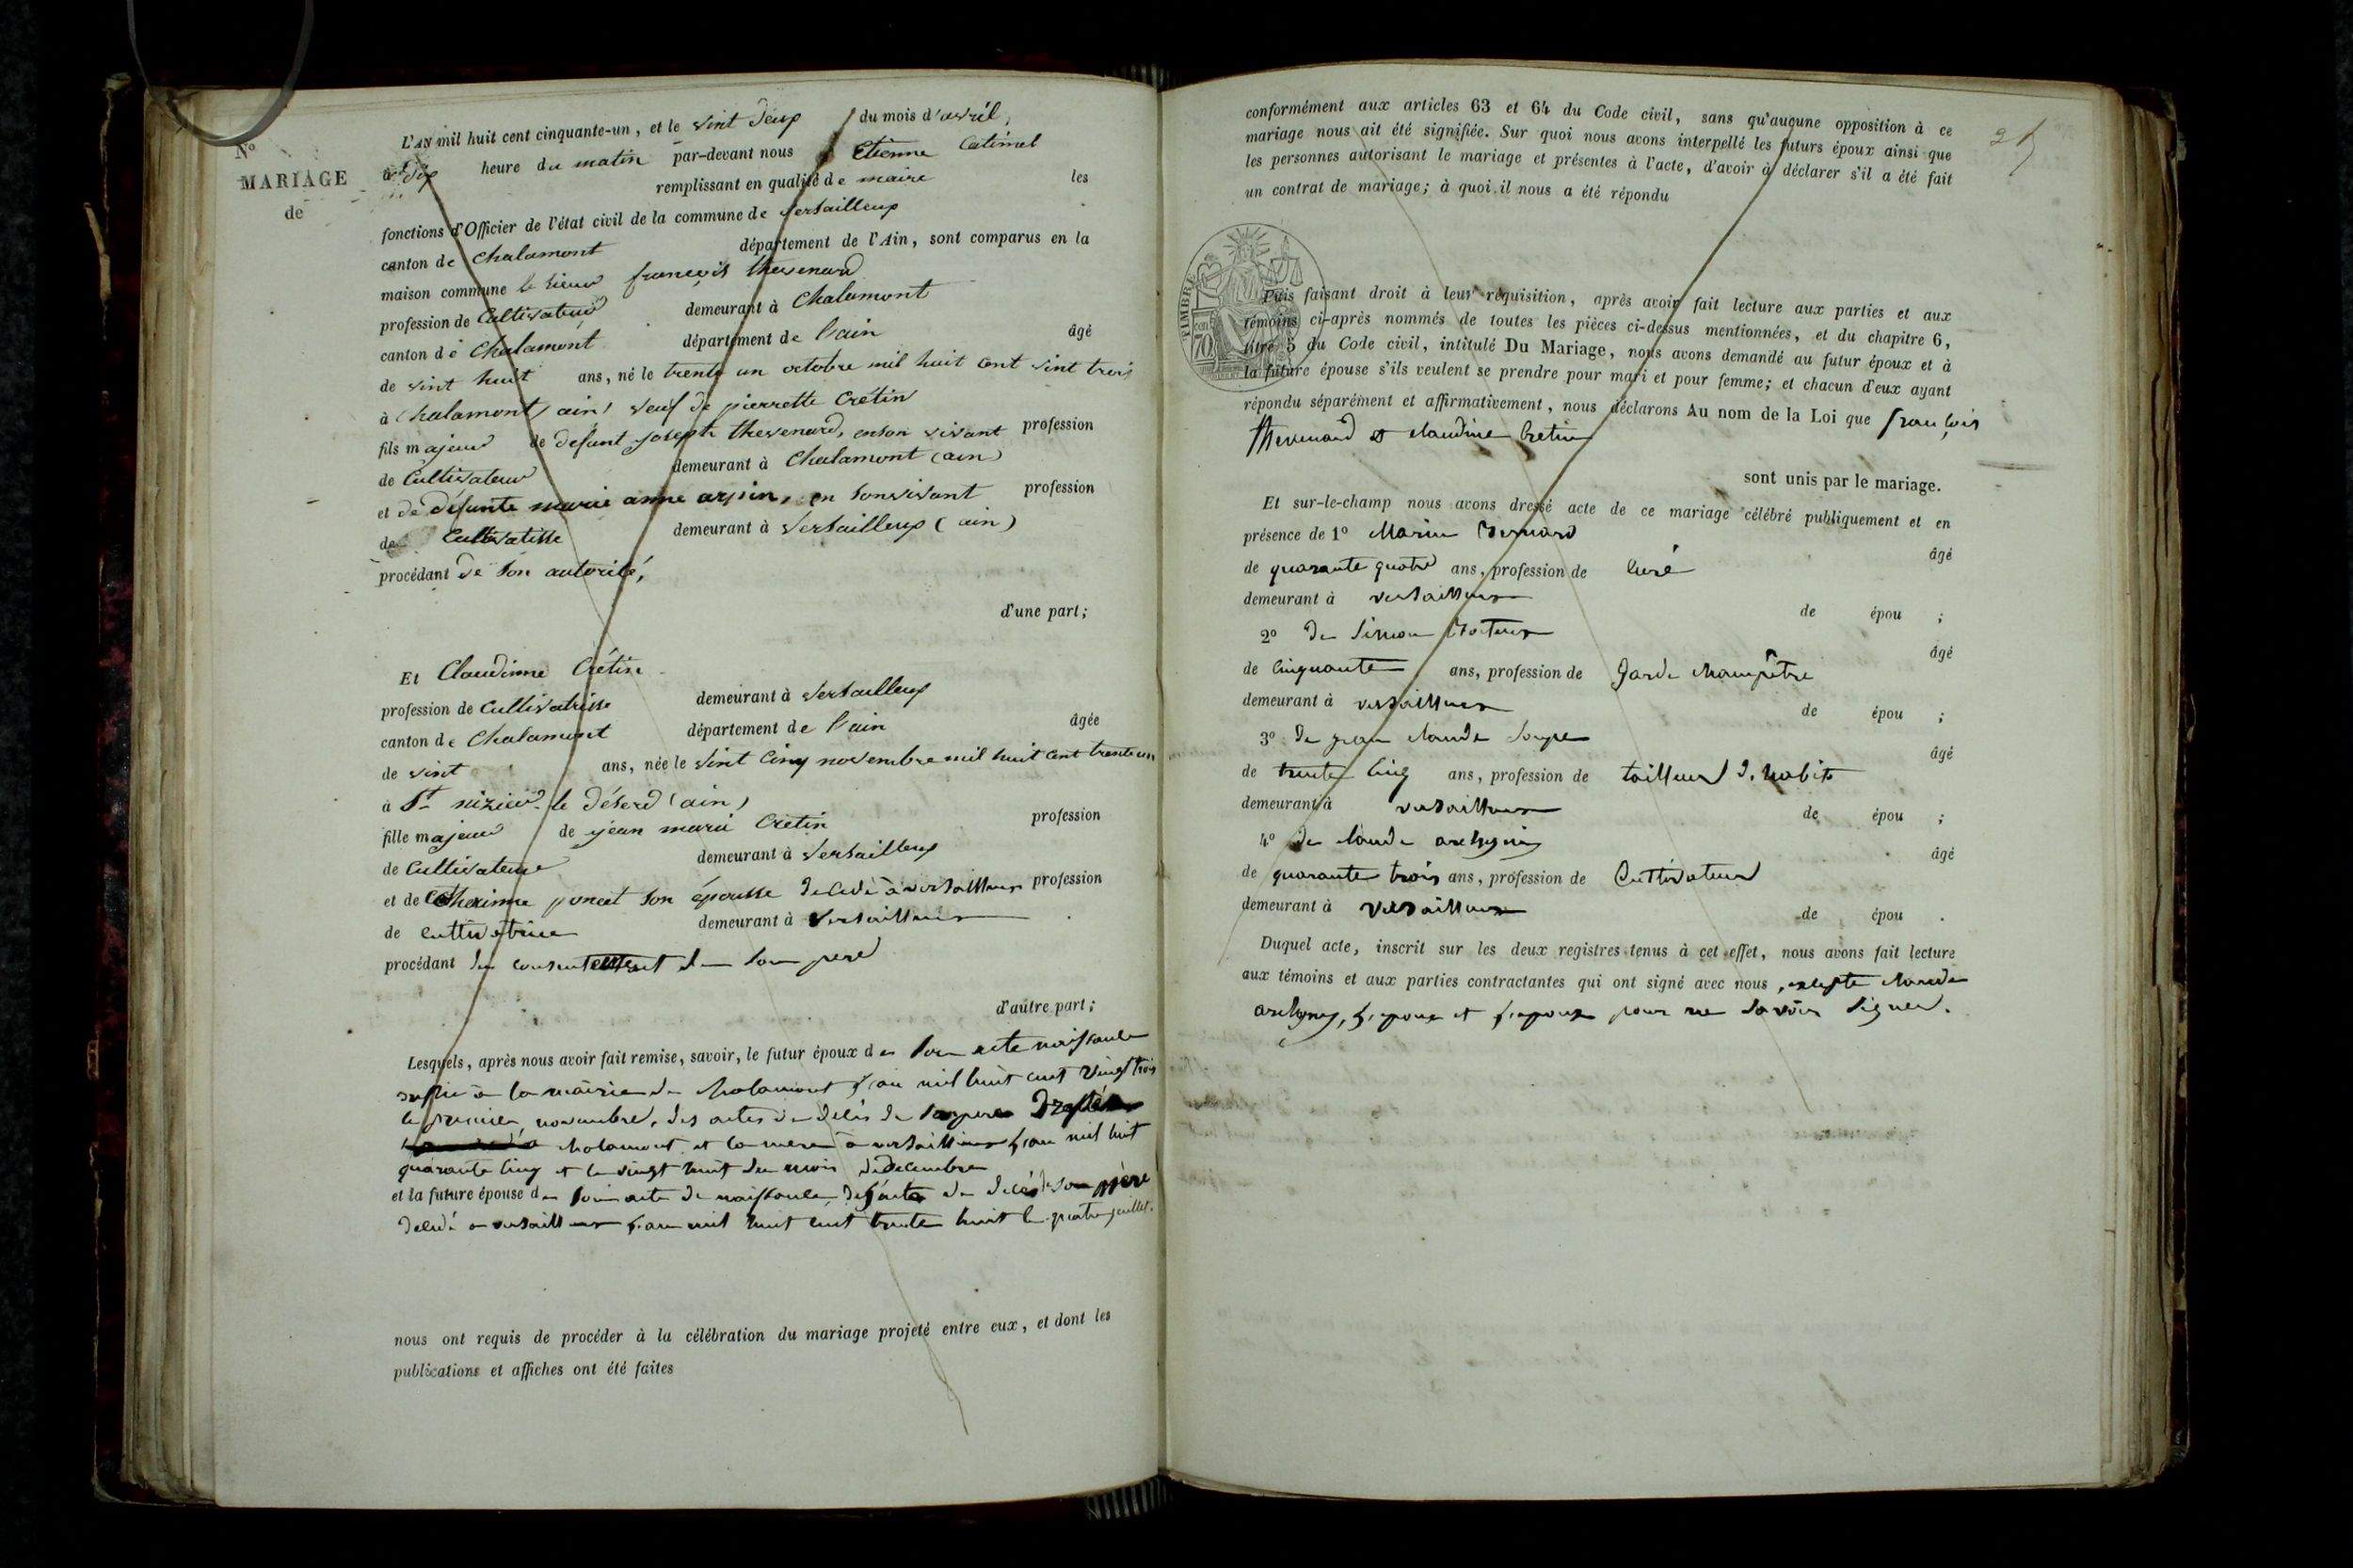 N°
MARIAGE
de
L'AN mil huit cent cinquante-un, et le vint deux du mois d'avril,
à dix heure du matin par-devant nous Etienne Catimel
remplissant en qualité de maire les
fonctions d'Officier de l'état civil de la commune de versailleux
canton de Chalamont département de l'Ain, sont comparus en la
maison commune le sieur françois thevenard
profession de Cultivateur demeurant à Chalamont
canton de Chalamont département de l'ain âgé
de vint huit ans, né le trente un octobre mil huit cent vint trois
à Chalamont (ain) veuf de pierrette Crétin
fils majeur de defunt joseph thevenard, enson vivant profession
de Cultivateur demeurant à Chalamont (ain)
et de défunte marie anne arpin, en sonvivant profession
de Cultivatisse demeurant à versailleux (ain)
procédant de son autorité,
d'une part;
Et Claudinne Crétin
profession de Cultivatrisse demeurant à versailleux
canton de Chalamont département de l'ain âgée
de vint ans, née le vint cinq novembre mil huit cent trente un
à St nizier le déserd (ain)
fille majeur de jean marie Cretin profession
de Cultivateur demeurant à versailleux
et de Catherinne poncet son épousse décédé à versailleux profession
de cultivatrice demeurant à versailleux
procédant du consentement de son pere
d'autre part;
Lesquels, après nous avoir fait remise, savoir, le futur époux de son acte naissance
à la mairie de chalamont l'an mil huit cent vingt trois
le premier novembre, des actes de délés de
à chalamont et la mere à versailleux l'an mil huit
quarante cinq et le vingt huit du mois de decembre
et la future épouse de son acte de naissance de décés de son père
décédé a versailleux l'an mil huit cent trente huit le quatre juillet.
nous ont requis de procéder à la célébration du mariage projeté entre eux, et dont les
publications et affiches ont été faites
conformément aux articles 63 et 64 du Code civil, sans qu'aucune opposition à ce
mariage nous ait été signifiée. Sur quoi nous avons interpellé les futurs époux ainsi que
les personnes autorisant le mariage et présentes à l'acte, d'avoir à déclarer s'il a été fait
un contrat de mariage; à quoi il nous a été répondu
TIMBRE
70
Puis faisant droit à leur réquisition, après avoir fait lecture aux parties et aux
témoins ci-après nommés de toutes les pièces ci-dessus mentionnées, et du chapitre 6,
titre 5 du Code civil, intitulé Du Mariage, nous avons demandé au futur époux et à
la future épouse s'ils veulent se prendre pour mari et pour femme; et chacun d'eux ayant
répondu séparément et affirmativement, nous déclarons Au nom de la Loi que françois
thevenard et claudine Cretin
sont unis par le mariage.
Et sur-le-champ nous avons dressé acte de ce mariage célébré publiquement et en
présence de 1° Marin Bernard
âgé
de quarante quatre ans, profession de curé
demeurant à versailleux
de épou ;
2° de Simon
âgé
de cinquante ans, profession de garde champêtre
demeurant à versailleux
de épou ;
3° de jean claude
âgé
de trente cinq ans, profession de tailleur d'habits
demeurant à versailleux
de épou ;
4° de claude
âgé
de quarante trois ans, profession de Cultivateur
demeurant à versailleux
de épou .
Duquel acte, inscrit sur les deux registres tenus à cet effet, nous avons fait lecture
aux témoins et aux parties contractantes qui ont signé avec nous, exepte claude
l'époux et l'epouse pour ne savoir signer.